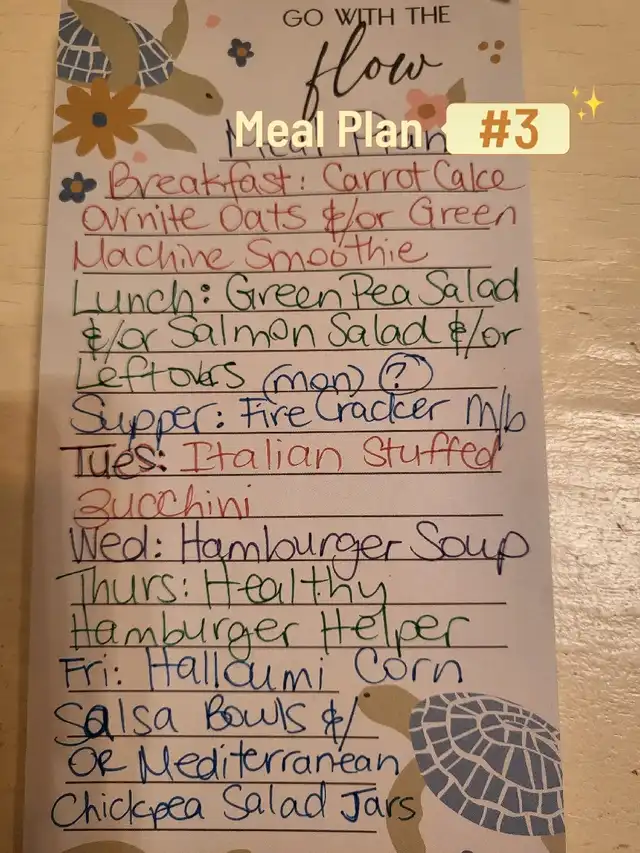 GO WITH THE
flow
Meal Plan #3
Meal Plan
Breakfast: Carrot Cake
Ovrnite Oats &/or Green
Machine Smoothie
Lunch: Green Pea Salad
&/or Salmon Salad &/or
Leftovers (mon) ?
Supper: Fire Cracker m/b
Tues: Italian Stuffed
Zucchini
Wed: Hamburger Soup
Thurs: Healthy
Hamburger Helper
Fri: Halloumi Corn
Salsa Bowls &/
OR Mediterranean
Chickpea Salad Jars